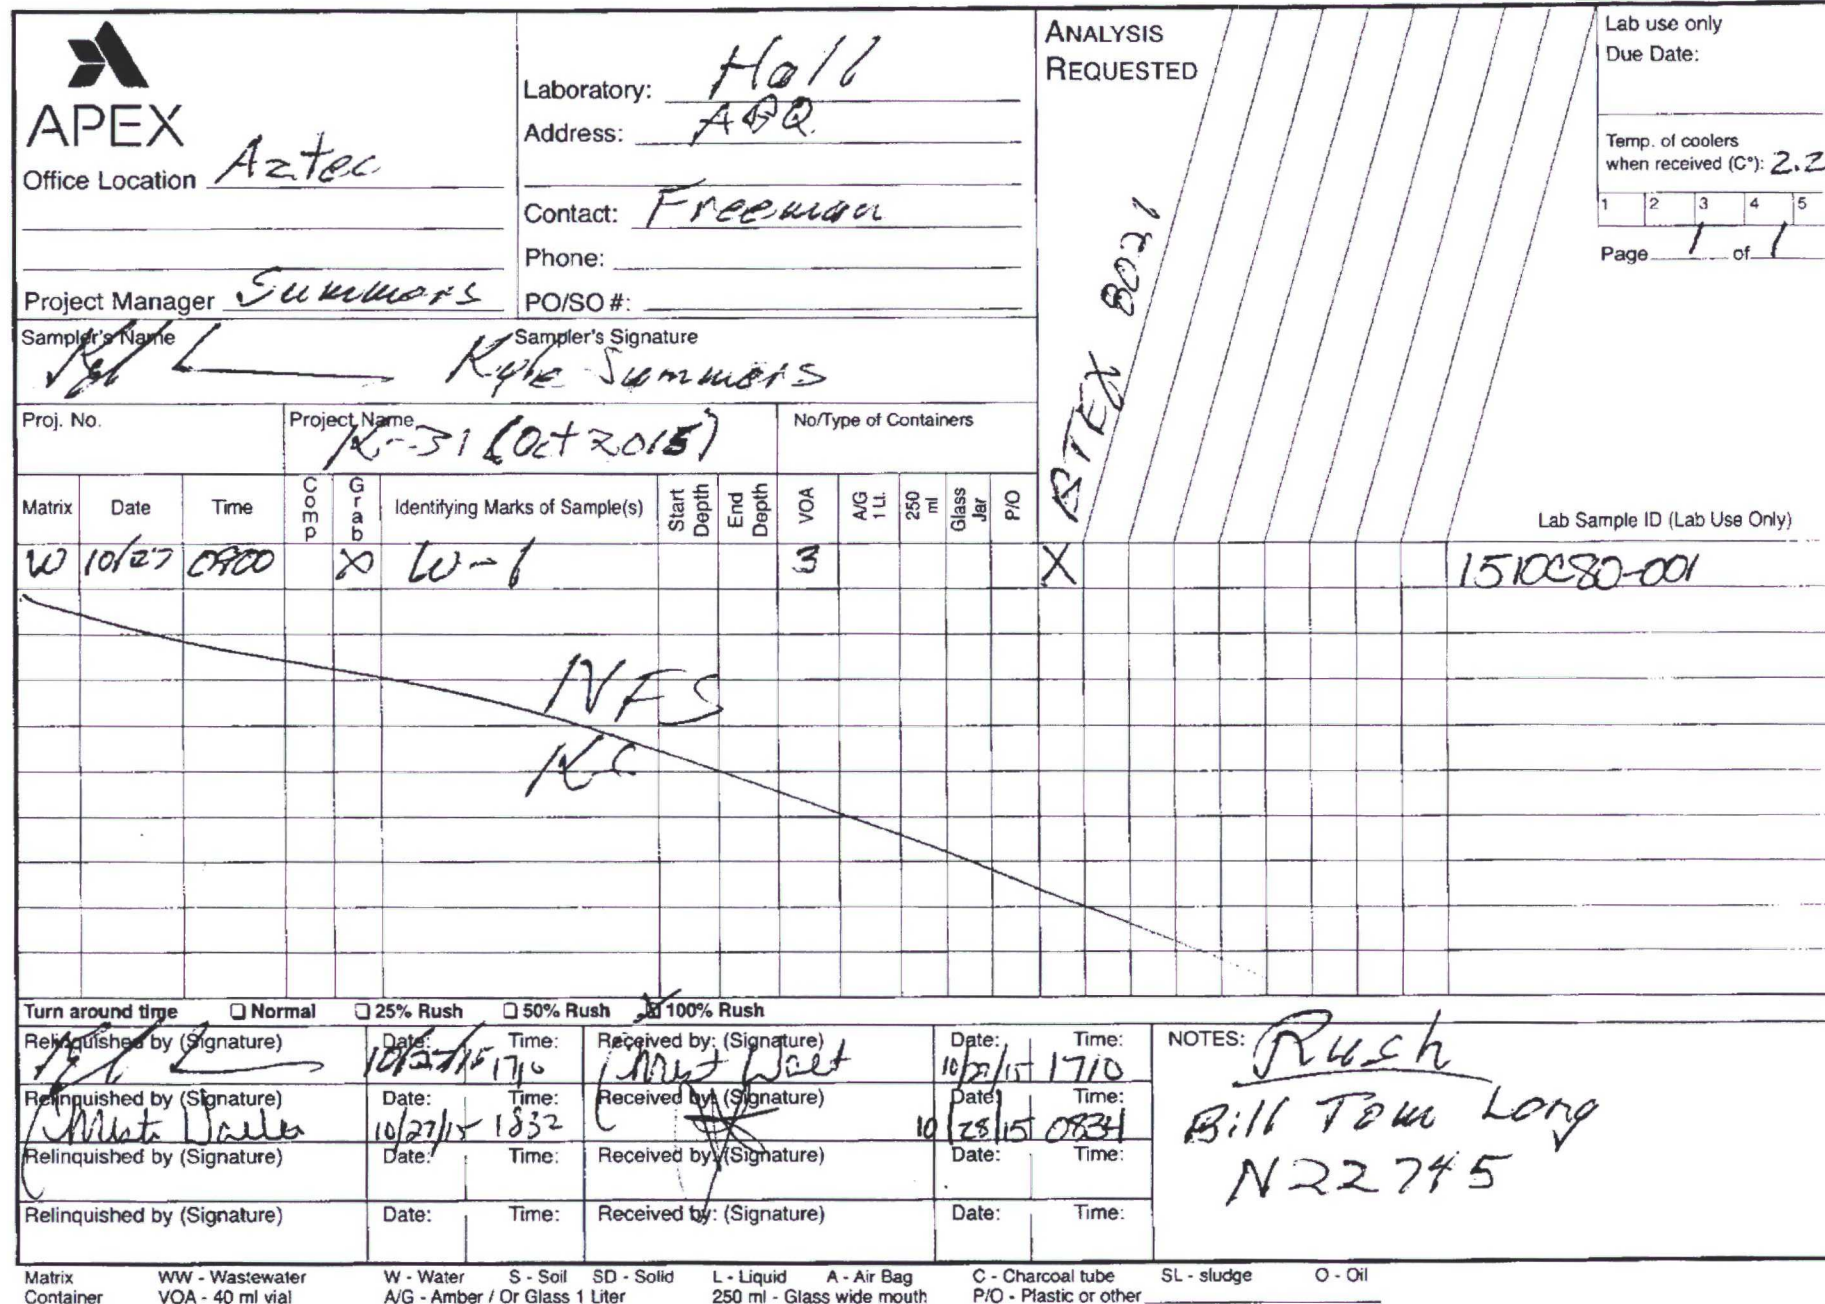 APEX
Office Location Aztec
Project Manager Summers
Laboratory: Hall
Address: ABQ
Contact: Freeman
Phone:
PO/SO #:
ANALYSIS
REQUESTED
BTEX 8021
Lab use only
Due Date:
Temp. of coolers
when received (C°): 2.2
1 2 3 4 5
Page 1 of 1
Sampler's Name
Sampler's Signature
Kyle Summers
Proj. No.
Project Name
K-31 (Oct 2015)
No/Type of Containers
Matrix Date Time Comp Grab Identifying Marks of Sample(s) Start Depth End Depth VOA A/G 1 Lt. 250 ml Glass Jar P/O
Lab Sample ID (Lab Use Only)
W 10/27 0900 X W-1 3 X 1510C80-001
NFS
KS
Turn around time Normal 25% Rush 50% Rush 100% Rush
Relinquished by (Signature) Date: Time: Received by: (Signature) Date: Time:
10/27/15 1710 10/27/15 1710
Relinquished by (Signature) Date: Time: Received by: (Signature) Date: Time:
10/27/15 1832 10/28/15 0834
Relinquished by (Signature) Date: Time: Received by: (Signature) Date: Time:
Relinquished by (Signature) Date: Time: Received by: (Signature) Date: Time:
NOTES: Rush
Bill Tom Long
N22745
Matrix WW - Wastewater W - Water S - Soil SD - Solid L - Liquid A - Air Bag C - Charcoal tube SL - sludge O - Oil
Container VOA - 40 ml vial A/G - Amber / Or Glass 1 Liter 250 ml - Glass wide mouth P/O - Plastic or other